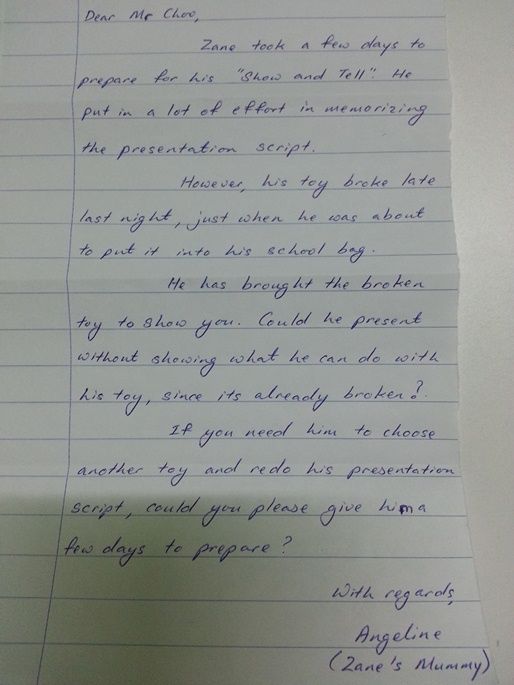 Dear Mr Choo,
Zane took a few days to
prepare for his "Show and Tell". He
put in a lot of effort in memorizing
the presentation script.
However, his toy broke late
last night, just when he was about
to put it into his school bag.
He has brought the broken
toy to show you. Could he present
without showing what he can do with
his toy, since its already broken?
If you need him to choose
another toy and redo his presentation
script, could you please give him a
few days to prepare?
With regards,
Angeline
(Zane's Mummy)